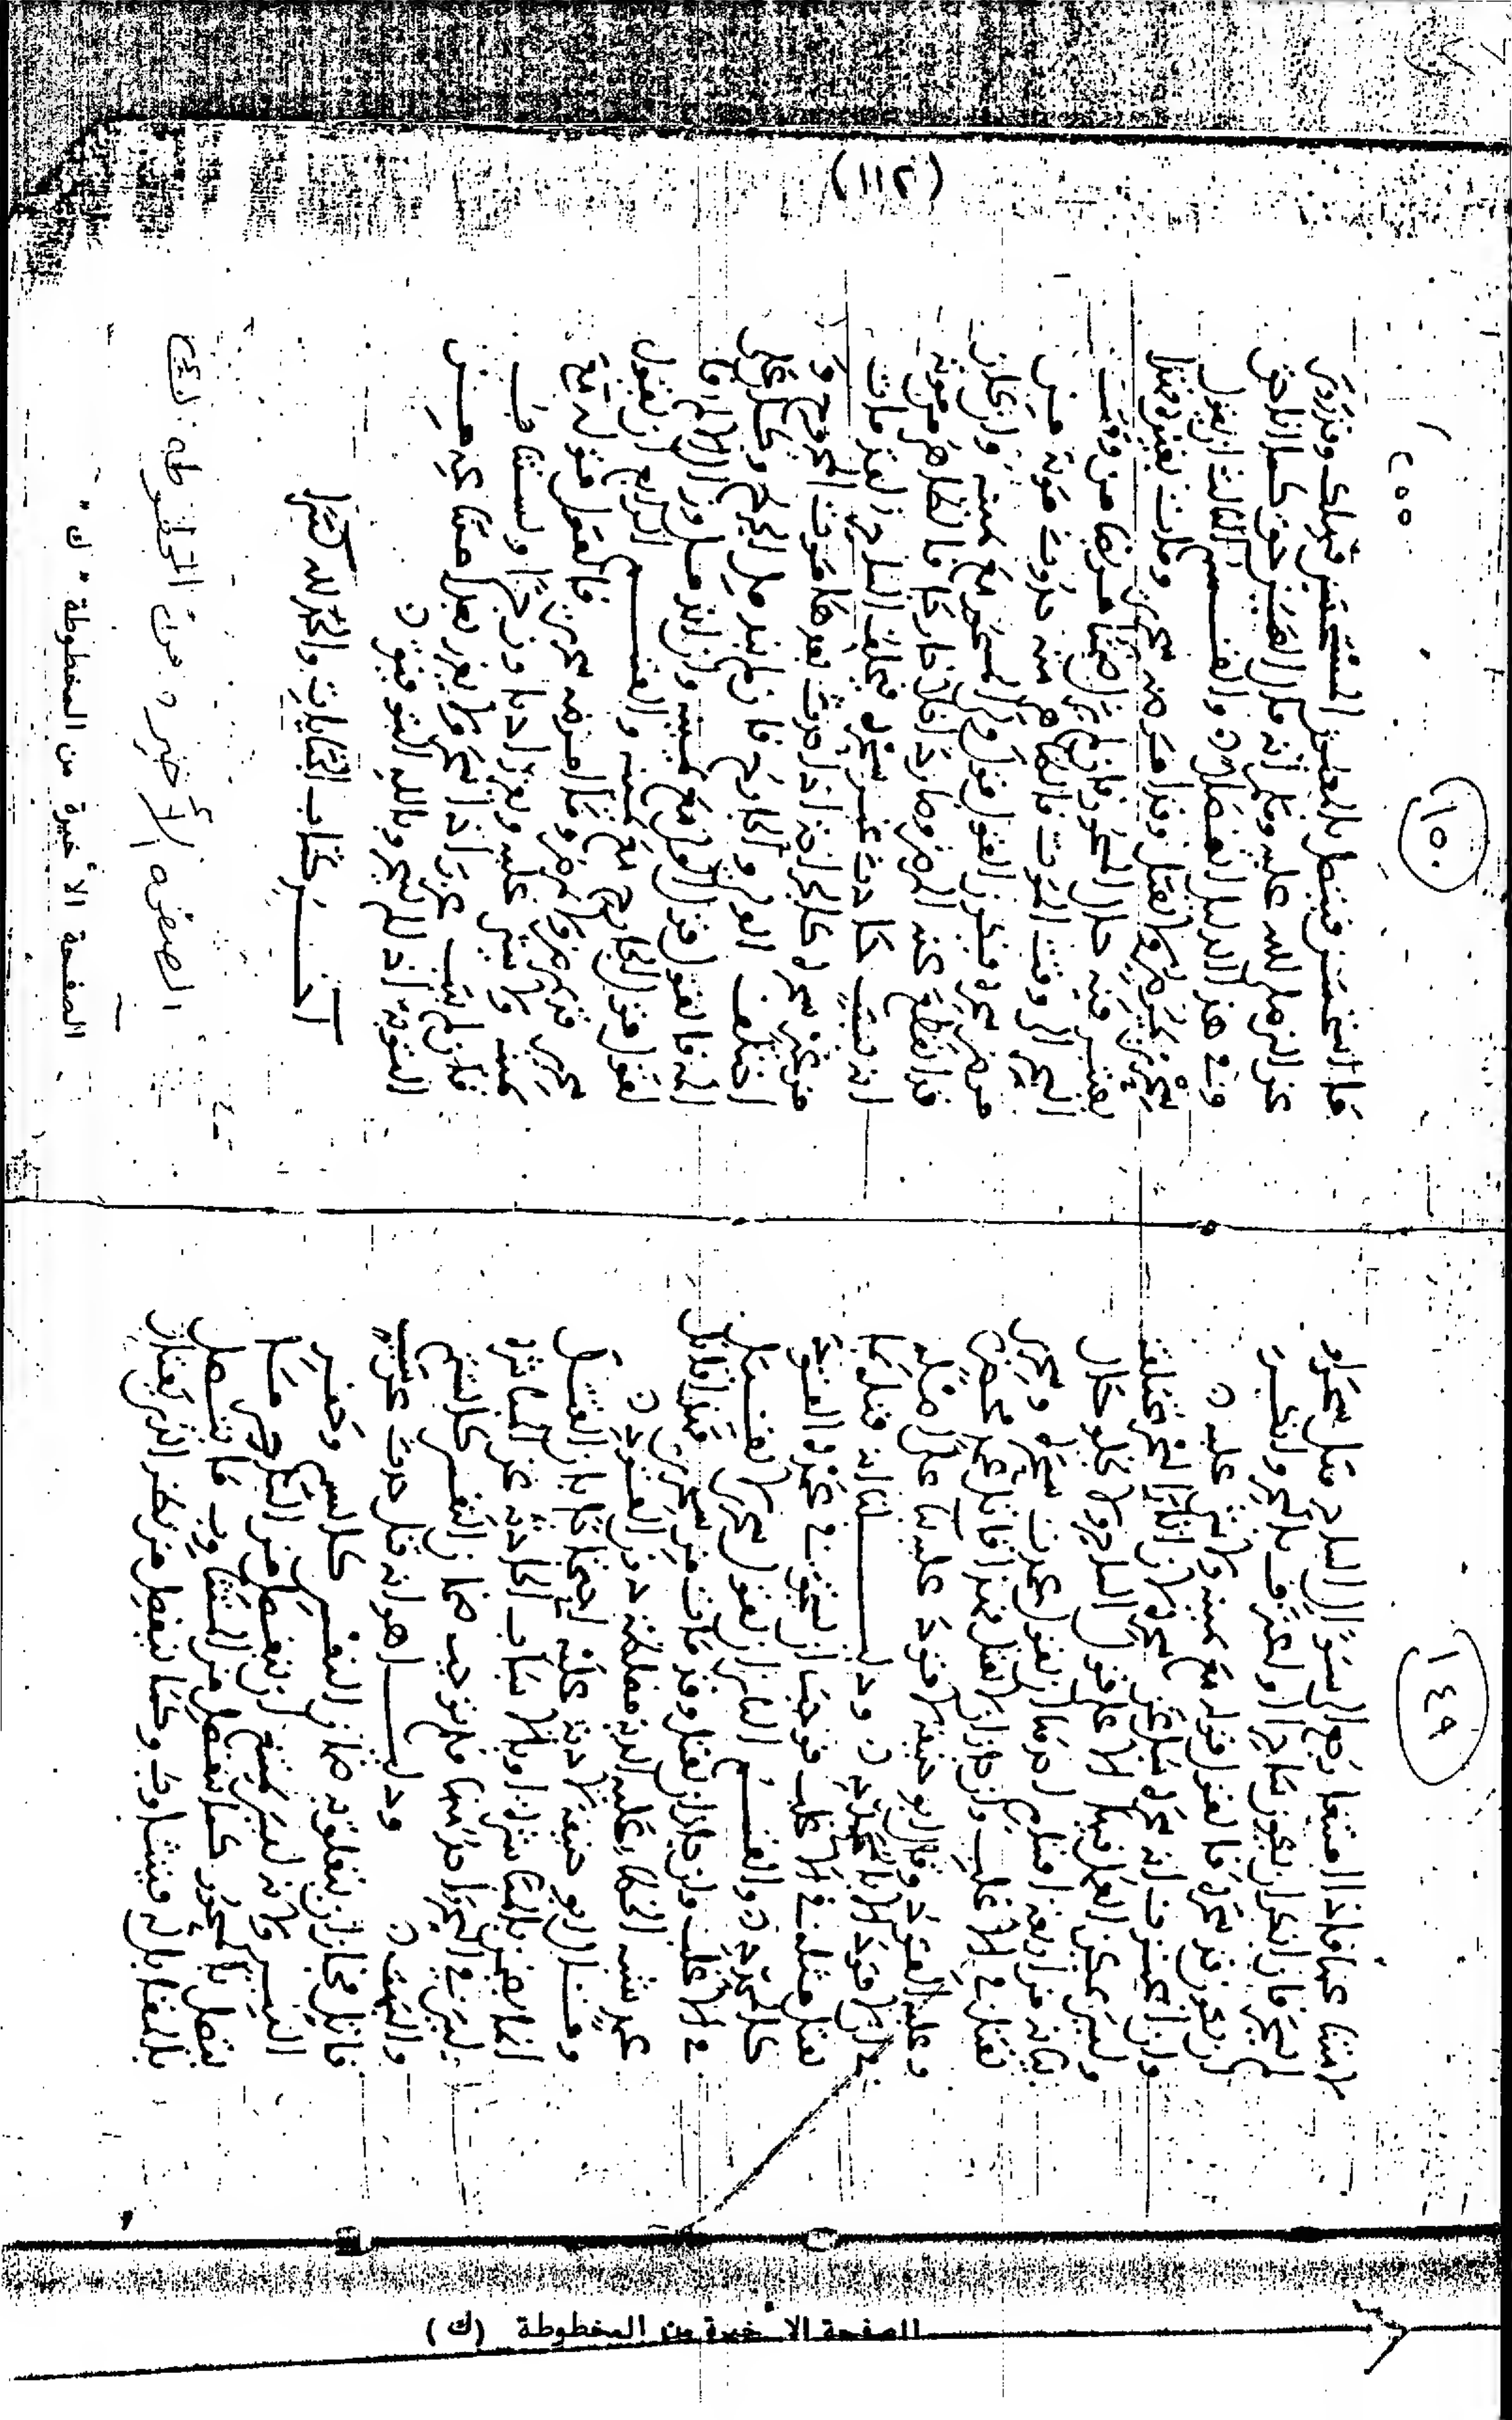 (٢١١)
١٤٩
لامتناعها فاذا امتنعا رجع الى سوال الساحر هل سحره او
لم يسحر فان انكر ان يكون ساحرا او اعترف بالسحر وانكر
ان يكون قد سحره فالقول قوله مع يمينه ولا شي عليه
وان اعترف انه سحره سئل عن سحره لان اثار السحر مختلفة
وليس يمكن العمل فيها الا على قول الساحر ولا تخلو حال
بيانه من اربعة اقسام احدها ان يقول عمدت سحره وسحري
يقتل في الاغلب وان جاز ان لا يقتل فهذا قاتل عمد محض
وعليه القود وقال ابو حنيفة لا قود عليه بنا على اصله
بان لا قود الا بالمحدد ودليلنا انه قتله بما
يقتل مثله في الاغلب فوجب ان يجب في عمده القود
كالمحدد والقسم الثاني ان يقول سحري لا يقتل
في الاغلب وان جاز ان يقتل وقد مات من سحري فهذا قاتل
عمد شبه الخطا وعليه الدية مغلظة دون القود
وقال ابو حنيفة لا دية عليه احتجاجا بان القتل
انما يضمن بالمباشرة او بالاسباب الحادثة عن المباشرة
وليس في السحر احدهما فلم توجب ضمان النفس كالشتم
والبهت ودليلنا هو انه قد حدث عن سبب
قاتل فجاز ان يتعلق به ضمان النفس كالسم وحفر
البير ولانه ليس يمتنع ان ينفصل من الساحر ما
يتصل بالمسحور كما ينفصل من المتثاوب ما يتصل
بالمقابل له فيتثاوب وكما ينفصل من نظر الذي
١٥٠
ما استحسن فيتصل بالمعين المستحسن فيهلك وقد روي
عن النبي صلى الله عليه وسلم انه قال العين حق كما ان السحر حق
وفي هذا الدليل انفصال والقسم الثالث ان يقول
سحري يمرض ولا يقتل وقد امرضه سحري ومات بغيره
يعتبر فيه حال المسحور فان لم يزل ضمنا مريضا من وقت
السحر الى وقت الموت فالظاهر منه حدوث موته من
مرض سحره فيكون القول قول ولي المسحور مع يمينه وان كان
قد انقطع عنه المرض وصار داخلا خارجا فالظاهر من موته
انه بسبب حادث غير سحره
من غير سحره كالجراحة اذا حدث بعدها موت المجروح و
اختلف الولي والجارح فان لم يندمل الجرح وكان على
المه فالقول قول الولي مع يمينه وان اندمل وزال الالم فا
لقول قول الجارح مع يمينه والقسم الرابع ان يقول
سحري قد يمرض ولا يمرض وما امرضه سحري فالقول قوله مع
يمينه ولا شي عليه ويعزر ادبا وزجرا ويستتاب
فان لم يتب عزر اذا سحر ولا يعزر بعد امتناعه من
التوبة اذا لم يسحر وبالله التوفيق
اخر كتاب الجنايات والحمد لله شكرا
الصفحة الأخيرة من المخطوطة (ك)
الصفحة الأخيرة من المخطوطة " ك "
الصفحة الأخيرة من المخطوطة (ك)